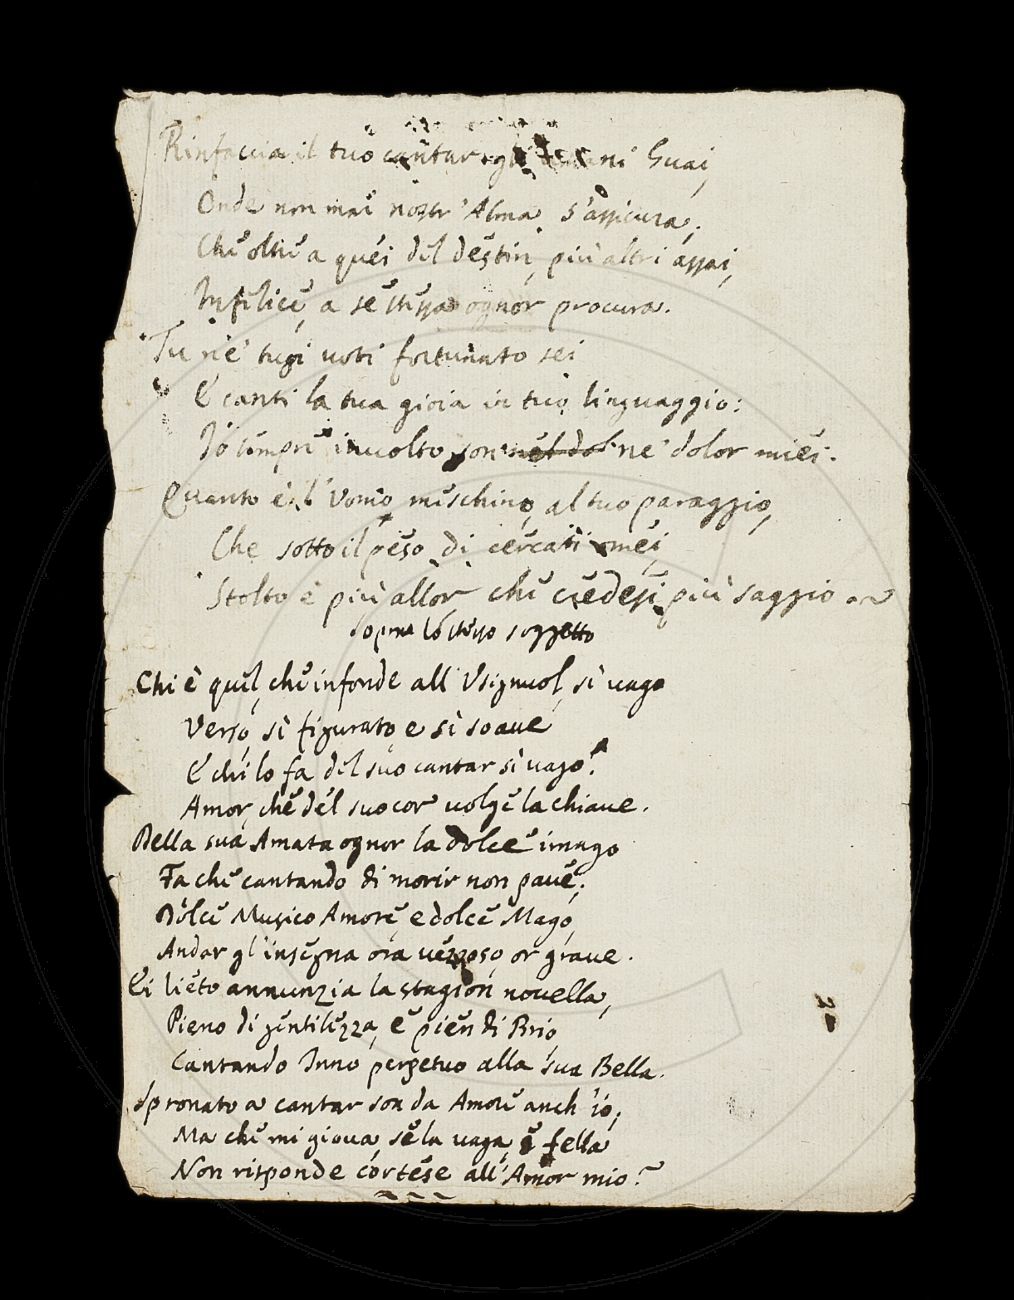 Rinfaccia il tuo cantar gl' umani Guai,
Onde non mai nostr' Alma s'assicura,
Che oltre a quei del destin, più altri assai,
Infelice, a se stessa ognor procura.
Tu ne' tuoi voti fortunato sei
E canti la tua gioia in tuo linguaggio:
Io sempre involto son nel dol ne' dolor miei.
Quanto è l' Uomo meschino, al tuo paraggio,
Che sotto il peso di cercati omei,
Stolto è più allor, che credesi più saggio
Sopra lo stesso soggetto
Chi è quel, che infonde all' Usignuol sì vago
Verso, sì figurato, e sì soave
E chi lo fa del suo cantar sì vago?
Amor, che del suo cor volge la chiave.
Della sua Amata ognor la dolce imago
Fa che cantando di morir non pave;
Dolce Musico Amore, e dolce Mago,
Andar gl' insegna ora vezzoso, or grave.
Ei lieto annunzia la stagion novella,
Pieno di gentilezza, e pien di Brio,
Cantando Inno perpetuo alla sua Bella.
Spronato a cantar son da Amore anch' io;
Ma che mi giova, se la vaga, e fella
Non risponde cortese all' Amor mio?